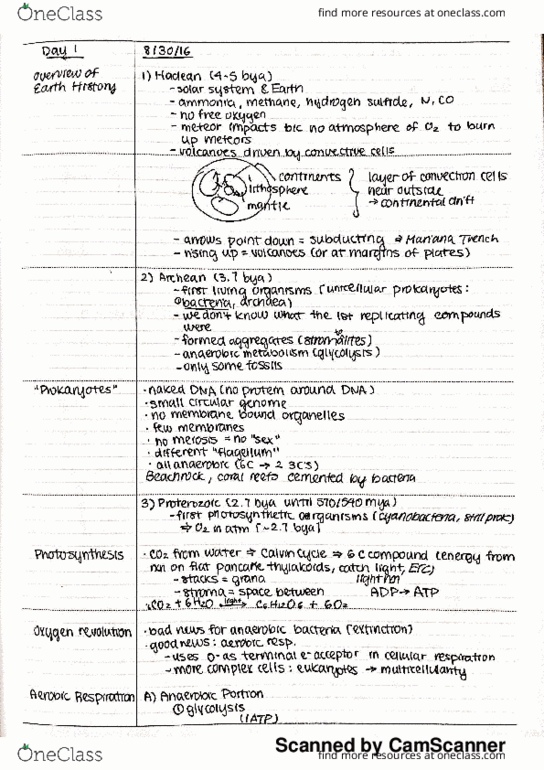 OneClass
find more resources at oneclass.com
Day 1
8/30/16
overview of Earth History
1) Hadean (4-5 bya)
- solar system & Earth
- ammonia, methane, hydrogen sulfide, N, CO
- no free oxygen
- meteor impacts b/c no atmosphere of O2 to burn
up meteors
- volcanoes driven by convective cells
continents
lithosphere
mantle
layer of convection cells
near outside
→ continental drift
- arrows point down = subducting ⇒ Mariana Trench
- rising up = volcanoes (or at margins of plates)
2) Archean (3.7 bya)
- first living organisms (unicellular prokaryotes:
bacteria, archaea)
- we don't know what the 1st replicating compounds
were
- formed aggregates (stromalites)
- anaerobic metabolism (glycolysis)
- only some fossils
"Prokaryotes"
· naked DNA (no protein around DNA)
· small circular genome
· no membrane bound organelles
· few membranes
· no meiosis = no "sex"
· different "flagellum"
· all anaerobic (6C → 2 3C's)
Beachrock, coral reefs cemented by bacteria
3) Proterozoic (2.7 bya until 570/540 mya)
- first photosynthetic organisms (cyanobacteria, still prok)
⇒ O2 in atm (~2.7 bya)
Photosynthesis
· CO2 from water ⇒ Calvin Cycle ⇒ 6C compound (energy from
rxn on flat pancake thylakoids, catch light, ETC)
- stacks = grana
light rxn
- stroma = space between
ADP → ATP
6CO2 + 6H2O light→ C6H12O6 + 6O2
Oxygen revolution
· bad news for anaerobic bacteria (extinction?)
· good news: aerobic resp.
- uses O- as terminal e- acceptor in cellular respiration
- more complex cells: eukaryotes → multicellularity
Aerobic Respiration
A) Anaerobic Portion
① glycolysis
(1ATP)
Scanned by CamScanner
OneClass
find more resources at oneclass.com